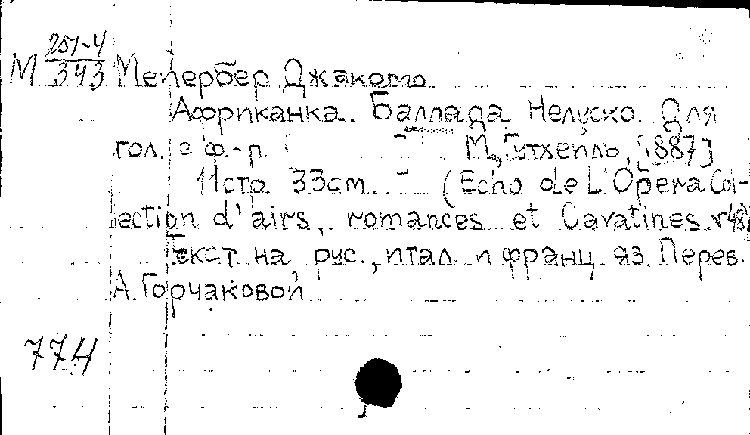 М 251-4
393 Мейербер Джакомо
Африканка. Баллада Нелуско. Для
гол. с ф.-р. М., Гутхейль, [1887]
11 стр. 33см. (Echo de L'Opera Col-
lection d'airs, romances et Cavatines
Текст на рус., итал и франц яз. Перев.
А. Горчаковой